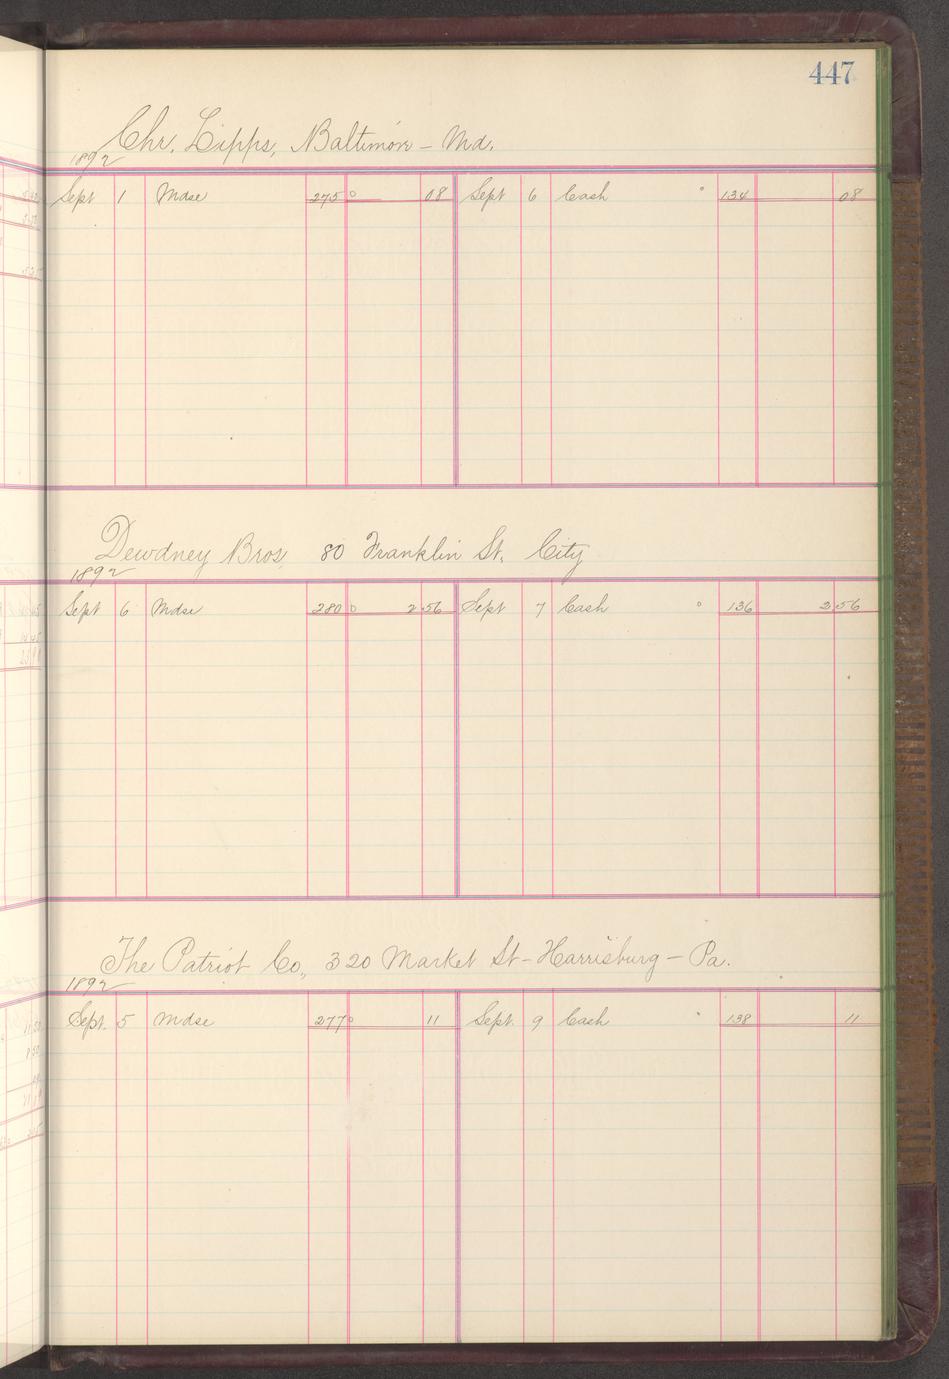 447
Chr. Lipps, Baltimore - Md.
1892
Sept 1 Mdse 275 08 Sept 6 Cash 134 08
Dewdney Bros, 80 Franklin St. City
1892
Sept 6 Mdse 280 2 56 Sept 7 Cash 136 2 56
The Patriot Co., 320 Market St - Harrisburg - Pa.
1892
Sept. 5 Mdse 277 11 Sept. 9 Cash 138 11